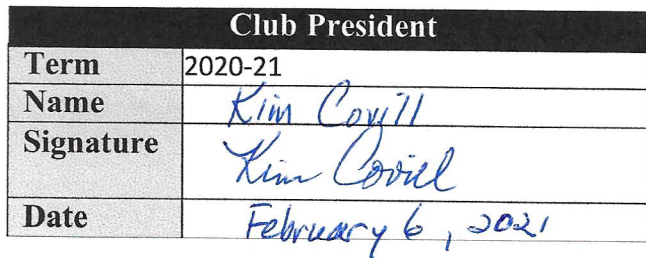 Club President
Term 2020-21
Name Kim Covill
Signature Kim Covill
Date February 6, 2021